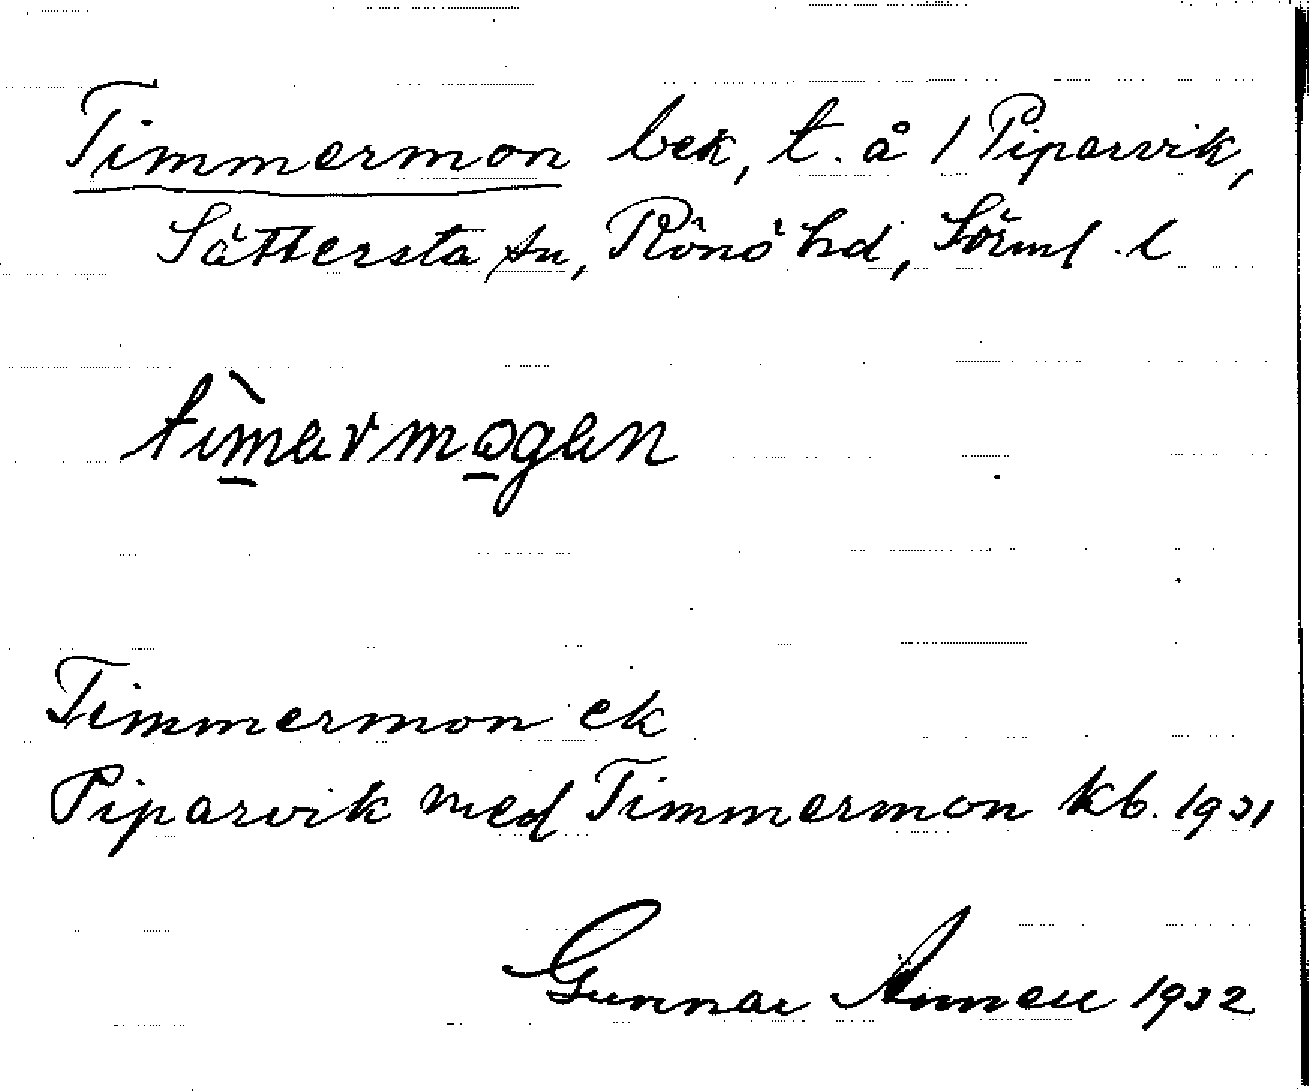 Timmermon bek, t. å 1 Piparvik,
Sättersta sn, Rönö hd, Sörml. l
tìmərmogən
Timmermon ek
Piparvik med Timmermon kb. 1931
Gunnar 1932